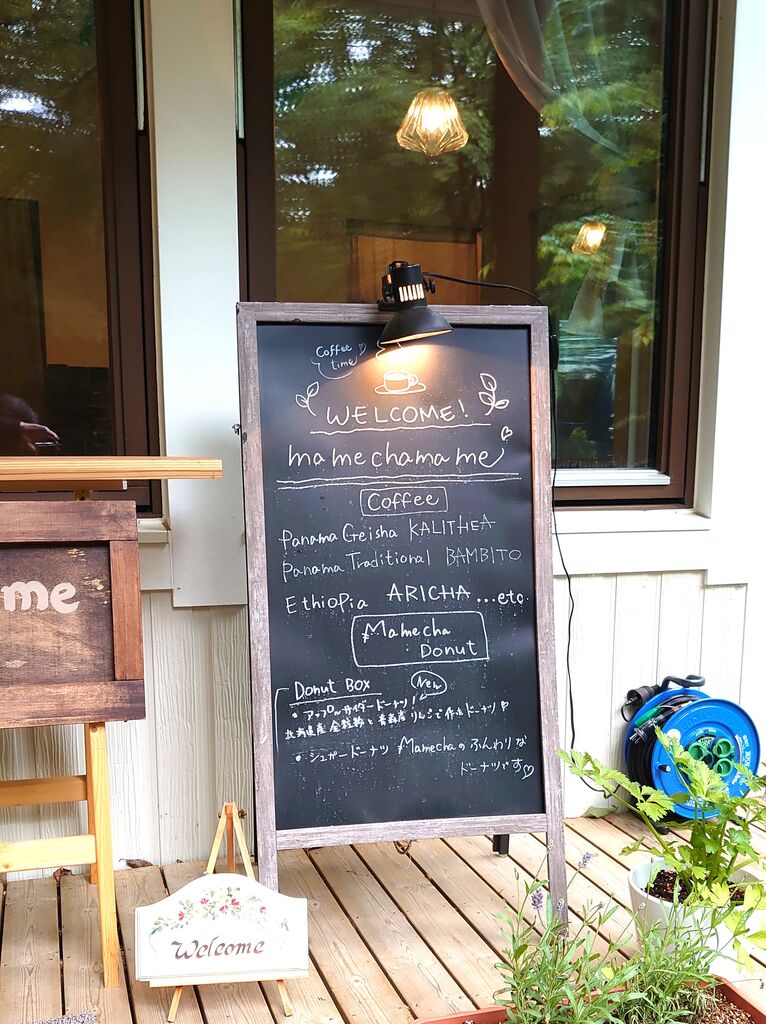 Coffee
time
WELCOME!
mamechamame
Coffee
Panama Geisha KALITHEA
Panama Traditional BAMBITO
Ethiopia ARICHA...etc
Mamecha
Donut
Donut Box
New
・アップルサイダードーナツ!
北海道産全粒粉と青森産りんごで作るドーナツ
・シュガードーナツ Mamechaのふんわりな
ドーナツです♡
me
Welcome